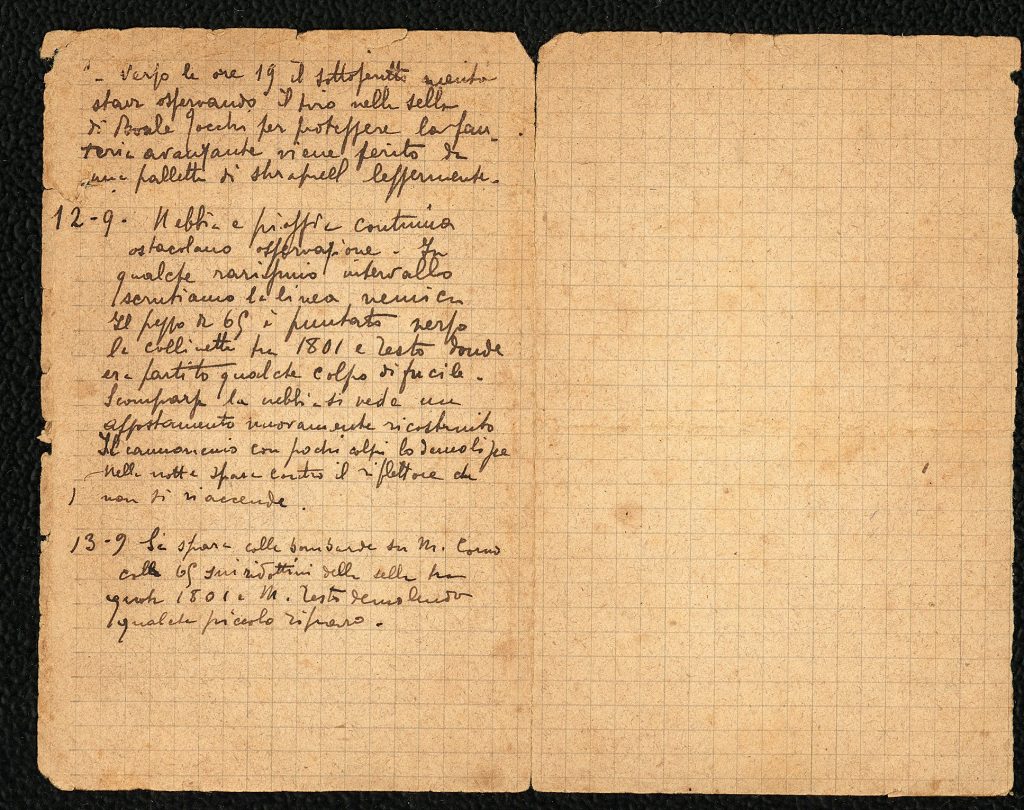 "- Verso le ore 19 il sottoscritto mentre
stava osservando il tiro nella sella
di Boale Zocchi per proteggere la fan-
teria avanzante viene ferito da
una palletta di shrapnell leggermente.
12-9. Nebbia e pioggia continua
ostacolano osservazione. In
qualche rarissimo intervallo
scrutiamo la linea nemica
Il pezzo da 65 è puntato verso
la collinetta tra 1801 e Testo donde
era partito qualche colpo di fucile.
Scomparsa la nebbia si vede un
appostamento nuovamente ricostruito
Il cannoncino con pochi colpi lo demolisce
Nella notte spara contro il riflettore che
non si riaccende.
13-9 Si spara colle bombarde su M. Corno
colle 65 sui ridottini della sella tra
quota 1801 e M. Testo demolendo
qualche piccolo riparo.